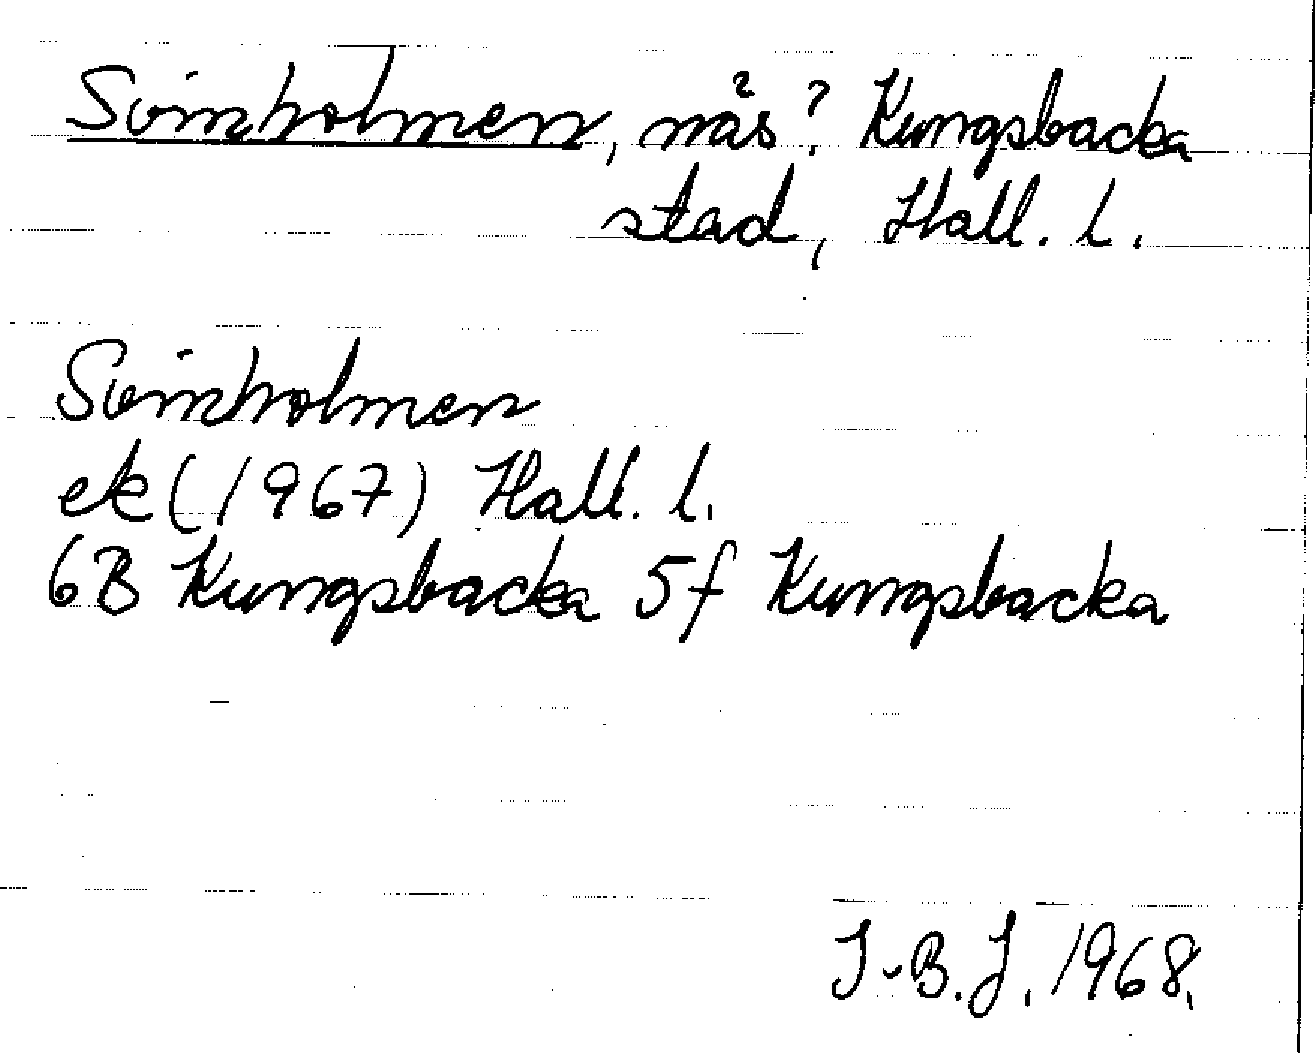 Svinholmen, näs? Kungsbacka
stad, Hall. l.
Svinholmen
ek (1967) Hall. l.
6B Kungsbacka 5f Kungsbacka
I-B.J. 1968.